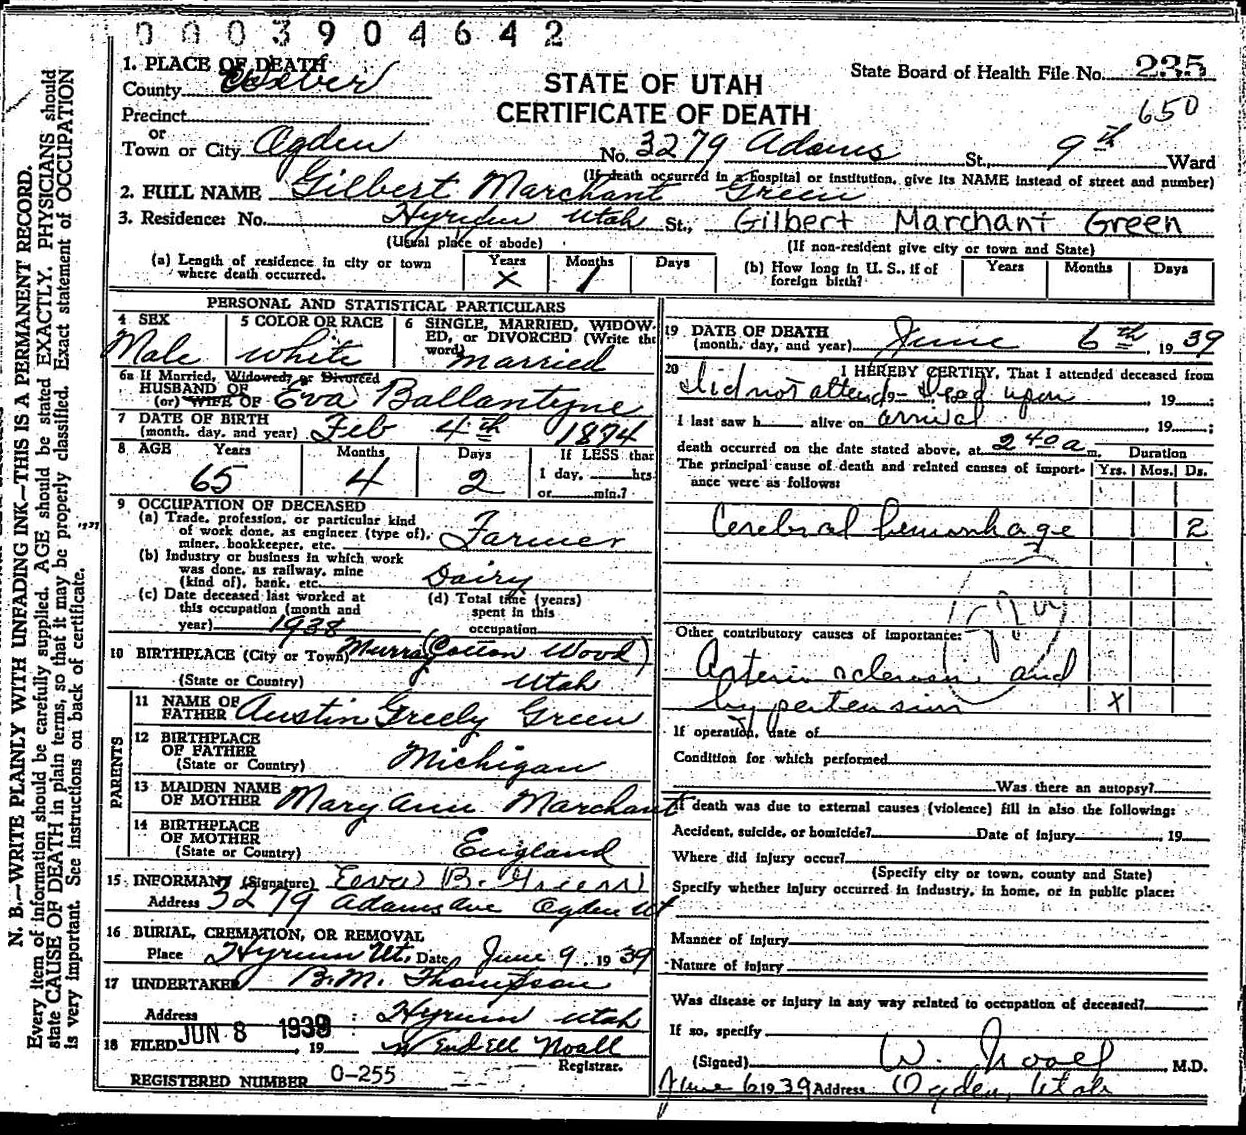 0003904642
1. PLACE OF DEATH
County Weber
STATE OF UTAH
CERTIFICATE OF DEATH
State Board of Health File No. 235
650
Precinct
or
Town or City Ogden No. 3279 Adams St., 9th Ward
(If death occurred in a hospital or institution, give its NAME instead of street and number)
2. FULL NAME Gilbert Marchant Green
3. Residence: No. Hyrum Utah St., Gilbert Marchant Green
(Usual place of abode) (If non-resident give city or town and State)
(a) Length of residence in city or town where death occurred. Years X Months 1 Days
(b) How long in U. S., if of foreign birth? Years Months Days
PERSONAL AND STATISTICAL PARTICULARS
4 SEX Male
5 COLOR OR RACE white
6 SINGLE, MARRIED, WIDOWED, or DIVORCED (Write the word) married
6a If Married, Widowed, or Divorced
HUSBAND OF
(or) WIFE OF Eva Ballantyne
7 DATE OF BIRTH
(month, day, and year) Feb 4th 1874
8 AGE Years 65 Months 4 Days 2 If LESS than 1 day, hrs. or min.?
9 OCCUPATION OF DECEASED
(a) Trade, profession, or particular kind
of work done, as engineer (type of),
miner, bookkeeper, etc. Farmer
(b) Industry or business in which work
was done, as railway, mine
(kind of), bank, etc. Dairy
(c) Date deceased last worked at
this occupation (month and
year) 1938
(d) Total time (years)
spent in this
occupation
10 BIRTHPLACE (City or Town) Murray (Cotton Wood)
(State or Country) Utah
PARENTS
11 NAME OF
FATHER Austin Greely Green
12 BIRTHPLACE
OF FATHER
(State or Country) Michigan
13 MAIDEN NAME
OF MOTHER Mary Ann Marchant
14 BIRTHPLACE
OF MOTHER
(State or Country) England
15 INFORMANT (Signature) Eeva B. Green
Address 3279 Adams Ave Ogden Ut
16 BURIAL, CREMATION, OR REMOVAL
Place Hyrum Ut. Date June 9, 1939
17 UNDERTAKER B.M. Thompson
Address Hyrum Utah
18 FILED JUN 8 1939, 19 Wendell Noall
Registrar.
REGISTERED NUMBER 0-255
19 DATE OF DEATH
(month, day, and year) June 6th, 1939
20 I HEREBY CERTIFY, That I attended deceased from
Did not attend - Dead upon, 19 ;
I last saw h alive on arrival, 19 ;
death occurred on the date stated above, at 2 40 a m. Duration
The principal cause of death and related causes of importance were as follows: Yrs. Mos. Ds.
Cerebral hemorrhage 2
Other contributory causes of importance:
Arterio sclerosis and
hypertension X
If operation, date of
Condition for which performed
Was there an autopsy?
If death was due to external causes (violence) fill in also the following:
Accident, suicide, or homicide? Date of injury, 19
Where did injury occur?
(Specify city or town, county and State)
Specify whether injury occurred in industry, in home, or in public place:
Manner of injury
Nature of injury
Was disease or injury in any way related to occupation of deceased?
If so, specify
(Signed) W. , M.D.
June 6 1939 Address Ogden, Utah
N. B.—WRITE PLAINLY WITH UNFADING INK—THIS IS A PERMANENT RECORD.
Every item of information should be carefully supplied. AGE should be stated EXACTLY. PHYSICIANS should
state CAUSE OF DEATH in plain terms, so that it may be properly classified. Exact statement of OCCUPATION
is very important. See instructions on back of certificate.